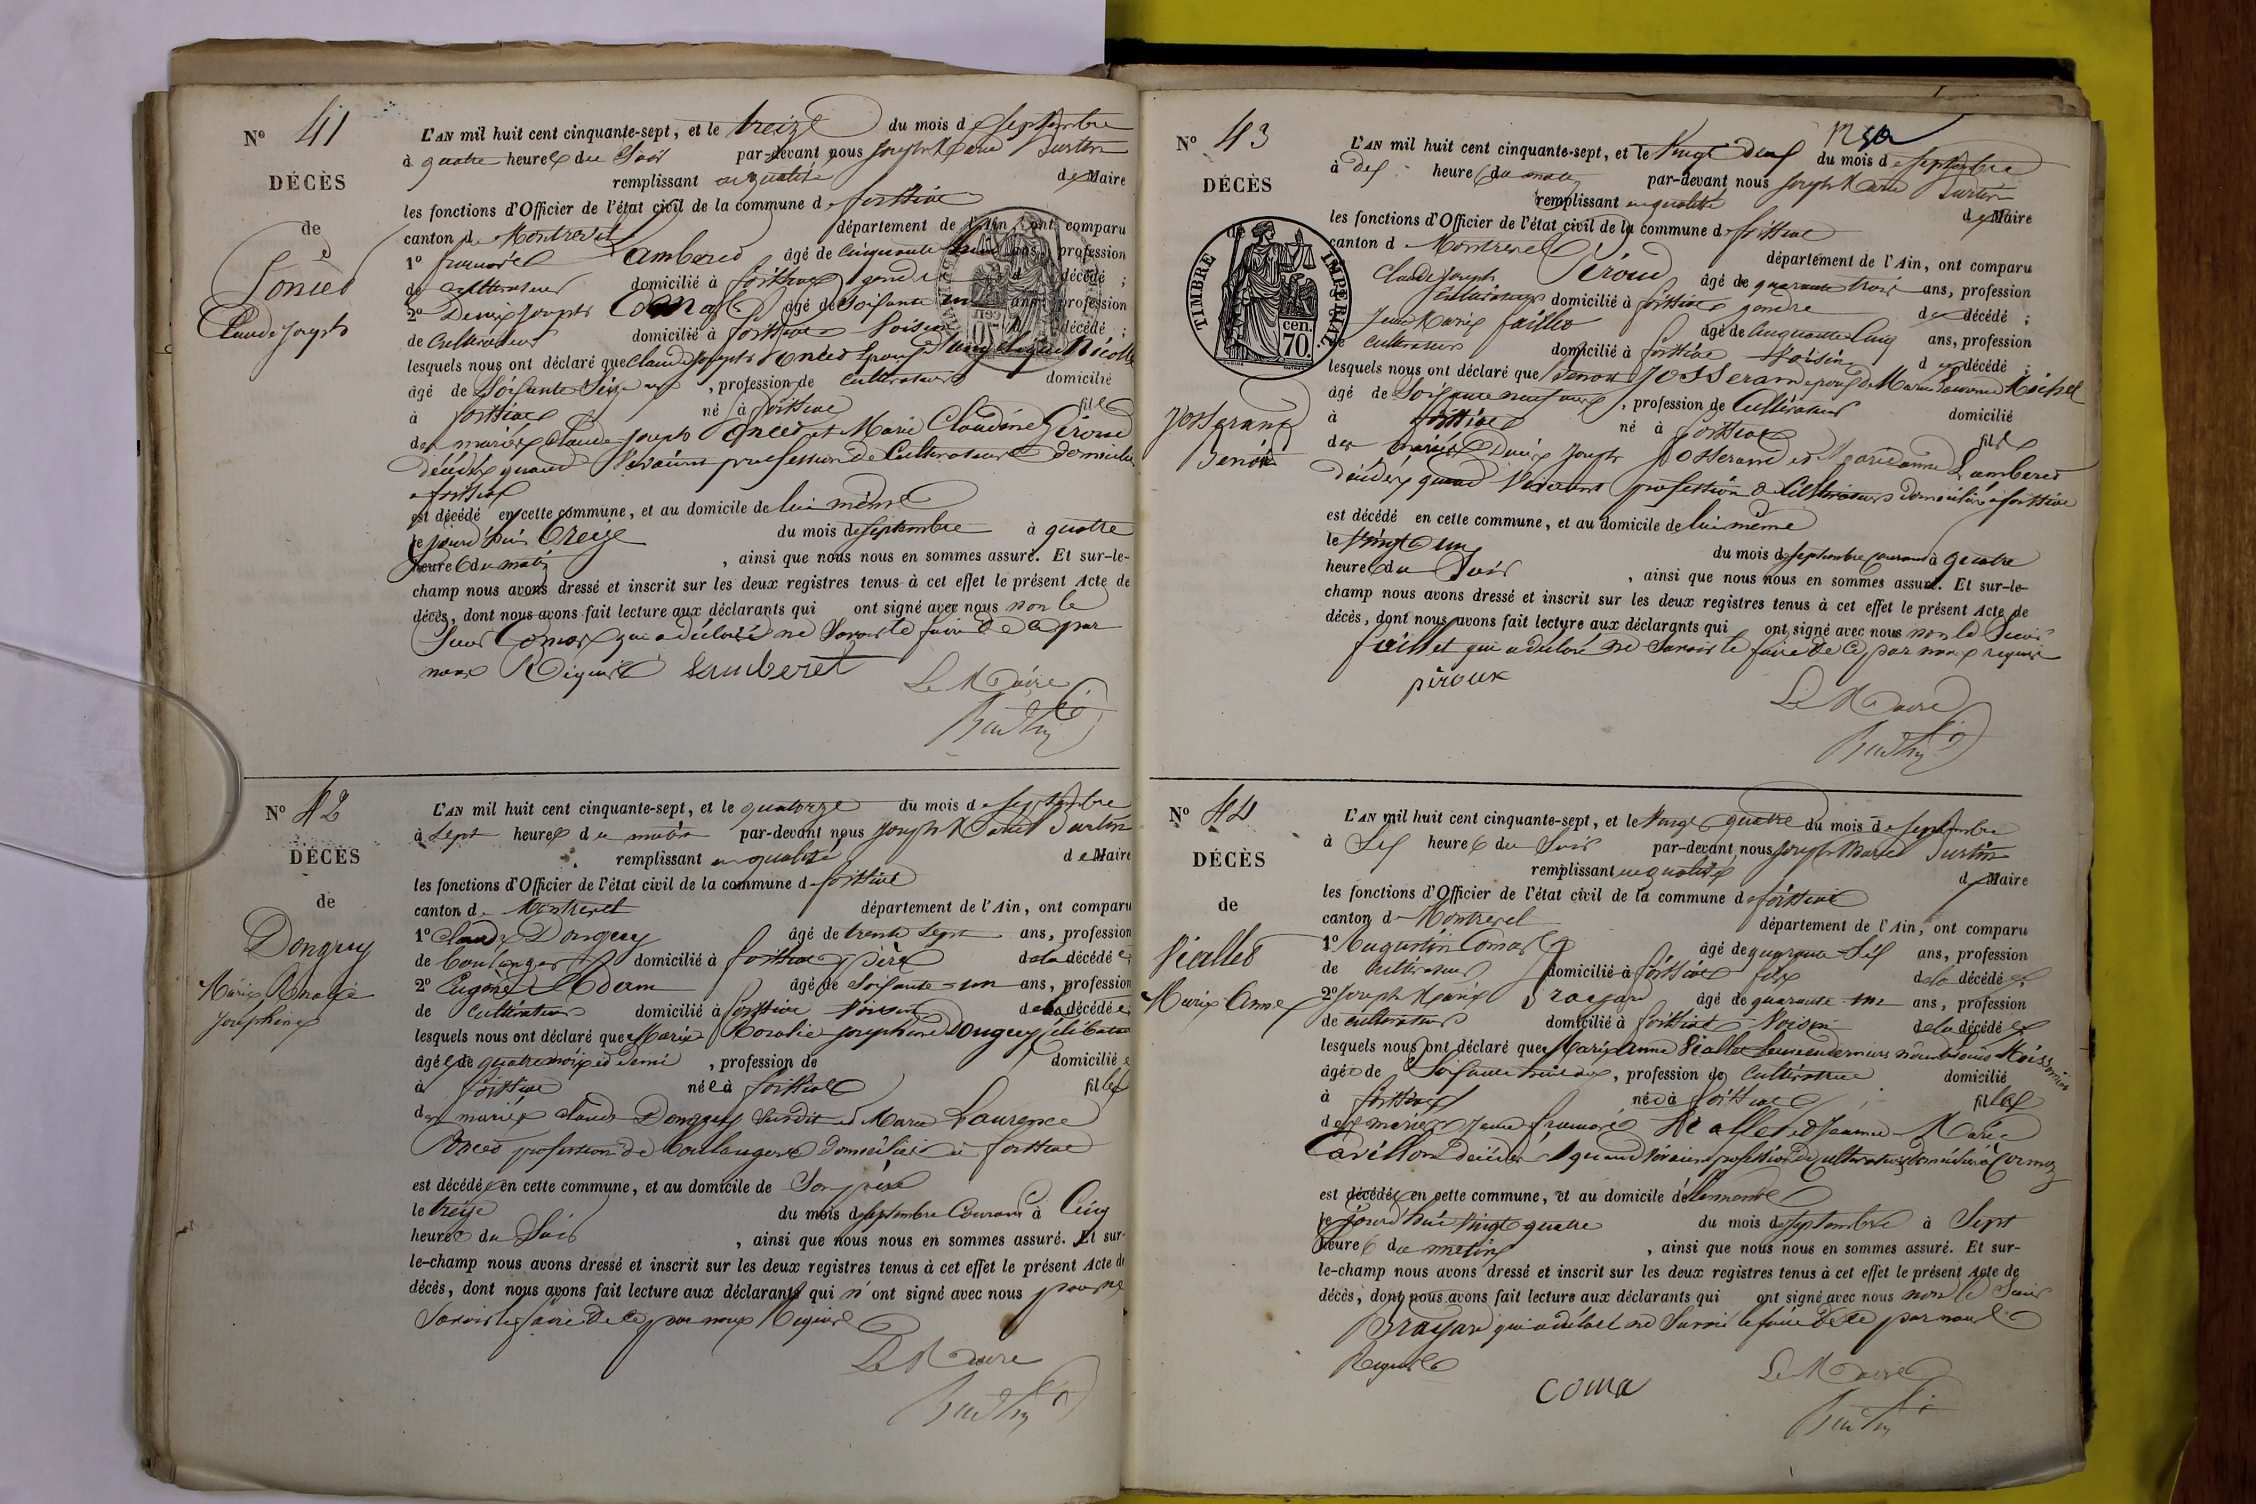 N° 41
DÉCÈS
de
Poncet
Claude Joseph
L'AN mil huit cent cinquante-sept, et le treize du mois de Septembre
à quatre heures du Soir par-devant nous Joseph Marie Burtin
remplissant en qualité de Maire
les fonctions d'Officier de l'état civil de la commune de foissiat
canton de Montrevel département de l'Ain, ont comparu
1° Lamberet âgé de Cinquante ans, profession
de cultivateur domicilié à foissiat gendre d décédé ;
2° Denis Joseph Comas âgé de Soixante un ans, profession
de Cultivateur domicilié à foissiat Voisin d décédé ;
lesquels nous ont déclaré que Claude Joseph Poncet époux de
âgé de Soixante Seize ans, profession de cultivateur domicilié
à foissiat né à foissiat fils
des mariés Claude Joseph Poncet et Marie Claudine Piroud
décédés quand Vivaient profession de Cultivateurs domiciliés
a foissiat
est décédé en cette commune, et au domicile de lui même
le jourd'hui treize du mois de Septembre à quatre
heures du matin, ainsi que nous nous en sommes assuré. Et sur-le-
champ nous avons dressé et inscrit sur les deux registres tenus à cet effet le présent Acte de
décès, dont nous avons fait lecture aux déclarants qui ont signé avec nous non le
Sieur Comas qui a déclaré ne Savoir le faire de ce par
nous Requis Lamberet
Le Maire
Burtin
N° 42
DÉCÈS
de
Dongey
Marie Rosalie
Joséphine
L'AN mil huit cent cinquante-sept, et le quatorze du mois de Septembre
à Sept heures du matin par-devant nous Joseph Marie Burtin
remplissant en qualité de Maire
les fonctions d'Officier de l'état civil de la commune de foissiat
canton de Montrevel département de l'Ain, ont comparu
1° Claude Dongey âgé de trente Sept ans, profession
de boulanger domicilié à foissiat père de la décédée
2° Eugène âgé de Soixante-un ans, profession
de Cultivateur domicilié à foissiat Voisin de la décédée
lesquels nous ont déclaré que Marie Rosalie Joséphine Dongey célibataire
âgée de quatre mois et demi, profession de domiciliée
à foissiat née à foissiat fille
des mariés Claude Dongey Susdit et Marie Laurence
Poncet profession de boulangers domiciliés à foissiat
est décédée en cette commune, et au domicile de Son père
le treize du mois de Septembre Courant à Cinq
heures du Soir, ainsi que nous nous en sommes assuré. Et sur-
le-champ nous avons dressé et inscrit sur les deux registres tenus à cet effet le présent Acte de
décès, dont nous avons fait lecture aux déclarants qui n'ont signé avec nous pour ne
Savoir le faire de ce par nous Requis
Le Maire
Burtin
N° 43
DÉCÈS
de
TIMBRE IMPERIAL
70 cen.
Josserand
Benoit
L'AN mil huit cent cinquante-sept, et le Vingt deux du mois de Septembre
à dix heures du matin par-devant nous Joseph Marie Burtin
remplissant en qualité de Maire
les fonctions d'Officier de l'état civil de la commune de foissiat
canton d Montrevel département de l'Ain, ont comparu
Claude Joseph Piroud âgé de quarante trois ans, profession
Cultivateur domicilié à foissiat gendre du décédé ;
Jean Marie faillet âgé de Cinquante Cinq ans, profession
de Cultivateur domicilié à foissiat Voisin du décédé ;
lesquels nous ont déclaré que Benoit Josserand époux de Marie Laurence Michel
âgé de Soixante neuf ans, profession de Cultivateur domicilié
à foissiat né à foissiat fils
des mariés Denis Joseph Josserand et Marianne Lamberet
décédés quand Vivaient profession de Cultivateurs domiciliés a foissiat
est décédé en cette commune, et au domicile de lui même
le Vingt un du mois de Septembre Courant à quatre
heures du Soir, ainsi que nous nous en sommes assuré. Et sur-le-
champ nous avons dressé et inscrit sur les deux registres tenus à cet effet le présent Acte de
décès, dont nous avons fait lecture aux déclarants qui ont signé avec nous non le Sieur
faillet qui a declaré ne Savoir le faire de ce par nous requis
piroux
Le Maire
Burtin
N° 44
DÉCÈS
de
Viallet
Marie Anne
L'AN mil huit cent cinquante-sept, et le Vingt quatre du mois de Septembre
à Six heures du Soir par-devant nous Joseph Marie Burtin
remplissant en qualité de Maire
les fonctions d'Officier de l'état civil de la commune de foissiat
canton d Montrevel département de l'Ain, ont comparu
1° Augustin Comas âgé de quarante Six ans, profession
de Cultivateur domicilié à foissiat fils de la décédée
2° Joseph Marie Brayard âgé de quarante-un ans, profession
de cultivateur domicilié à foissiat Voisin de la décédée
lesquels nous ont déclaré que Marie Anne Viallet
âgée de, profession de Cultivatrice domicilié
à foissiat née à foissiat fille
des mariés Viallet et Jeanne Marie
Cavillon décédés quand Vivaient profession de cultivateurs domiciliés à Cormoz
est décédée en cette commune, et au domicile de
le jourd'hui Vingt quatre du mois de Septembre à Sept
heures du matin, ainsi que nous nous en sommes assuré. Et sur-
le-champ nous avons dressé et inscrit sur les deux registres tenus à cet effet le présent Acte de
décès, dont nous avons fait lecture aux déclarants qui ont signé avec nous non le Sieur
Brayard qui a déclaré ne Savoir le faire de ce par nous
Requis
coma
Le Maire
Burtin